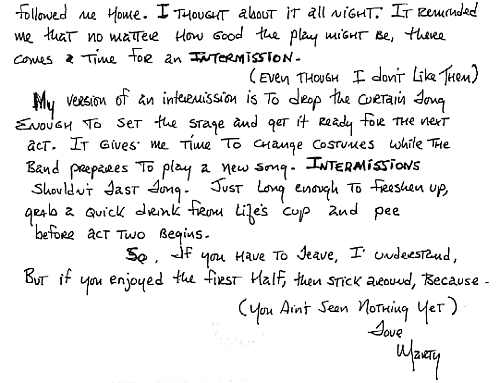 followed me Home. I THOUGHT about it all NIGHT. IT Reminded
me that no matter How Good the play might Be, there
comes a Time for an INTERMISSION.
(Even Though I don't Like Them)
My version of an intermission is To drop the curtain Long
Enough To Set the stage and get it Ready for the next
act. IT Gives me Time To Change Costumes while The
Band prepares To play a new song. INTERMISSIONS
Shouldn't Last Long. Just Long enough to freshen up,
grab a quick drink from Life's cup and pee
before act Two Begins.
So, If you Have To Leave, I understand,
But if you enjoyed the first Half, then stick around, Because -
(You Ain't Seen Nothing Yet)
Love
Marty